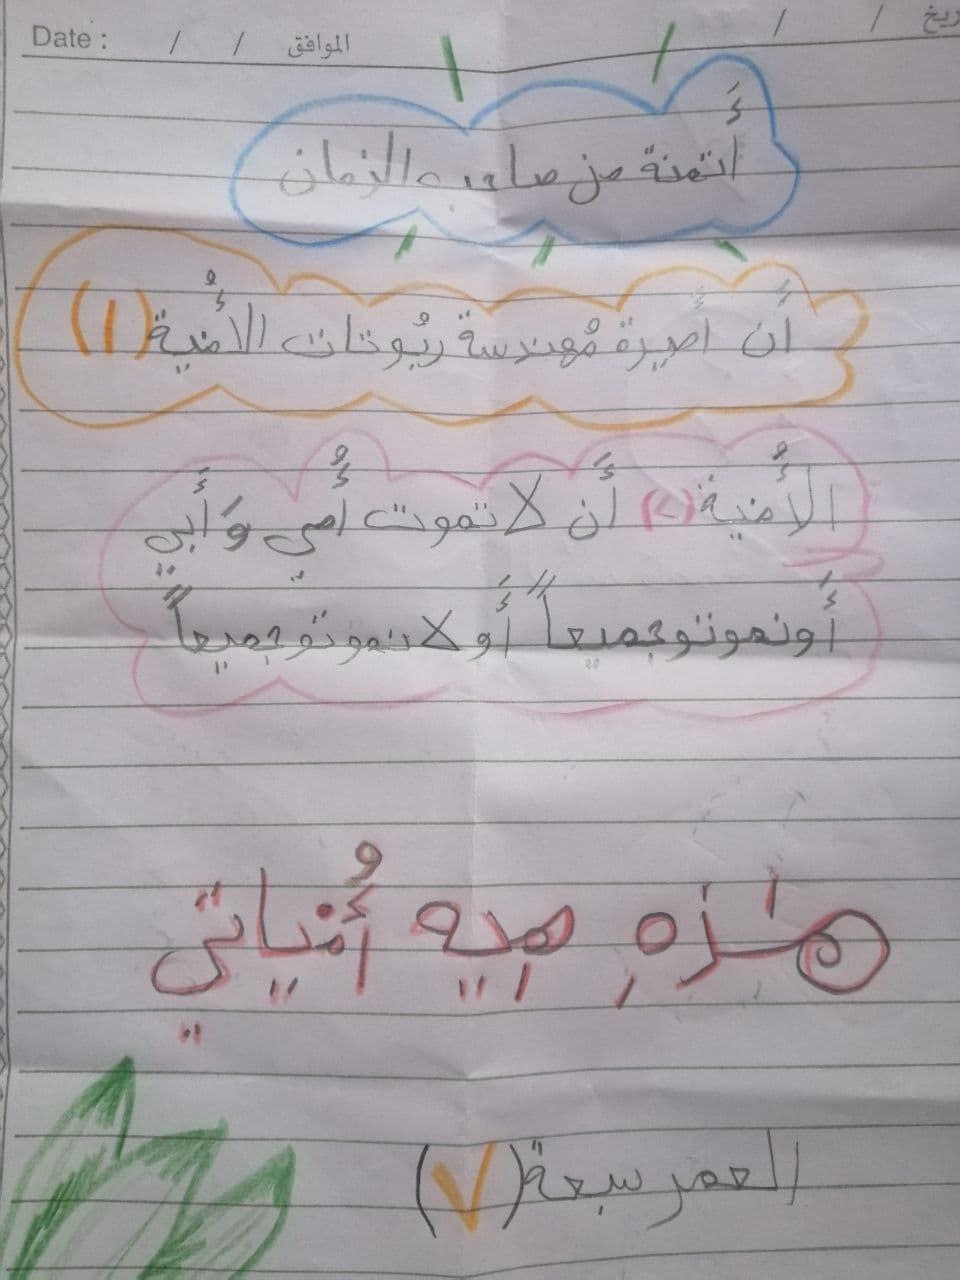 Date : / / الموافق / / ريخ
أَتمنة من صاحب الزمان
أَن أَصيرة مُهندسة ربُوتات الأُمنية (١)
الأُمنية (٢) أَن لا تموت أُمي وَ أَبي
أَو نموتو جميعاً أَو لا نموتو جميعاً
هٰذهِ هِيه أُمنياتي
العمر سبعة (٧)